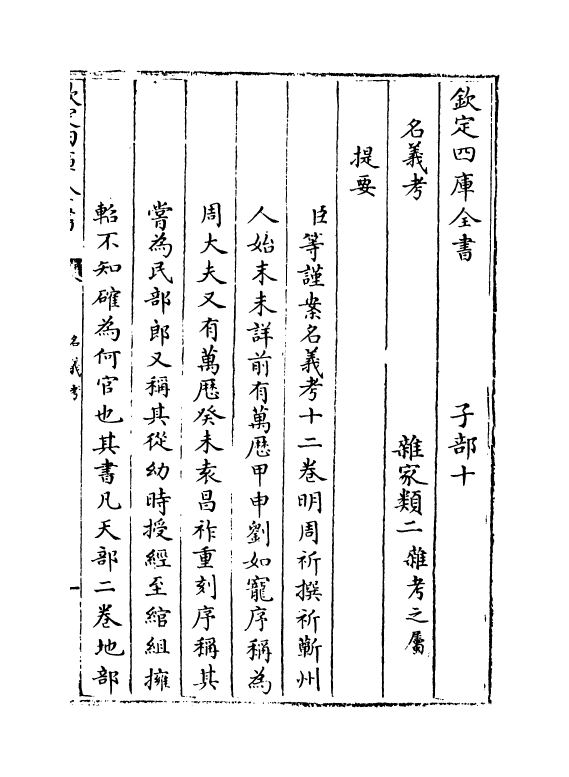 欽定四庫全書　子部十
名義考　雜家類二雜考之屬
提要
臣等謹案名義考十二卷明周祈撰祈蘄州
人始末未詳前有萬歷甲申劉如寵序稱為
周大夫又有萬歷癸未袁昌祚重刻序稱其
嘗為民部郎又稱其從幼時授經至綰組擁
軺不知確為何官也其書凡天部二卷地部
欽定四庫全書　名義考　一